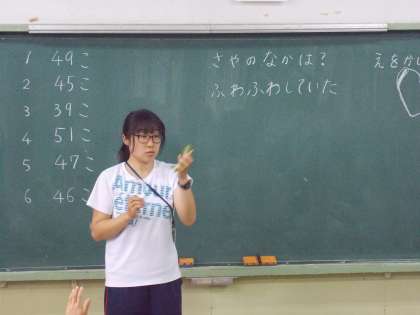 1 49こ
2 45こ
3 39こ
4 51こ
5 47こ
6 46こ
さやのなかは?
ふわふわしていた
えをか
Amour
éternel